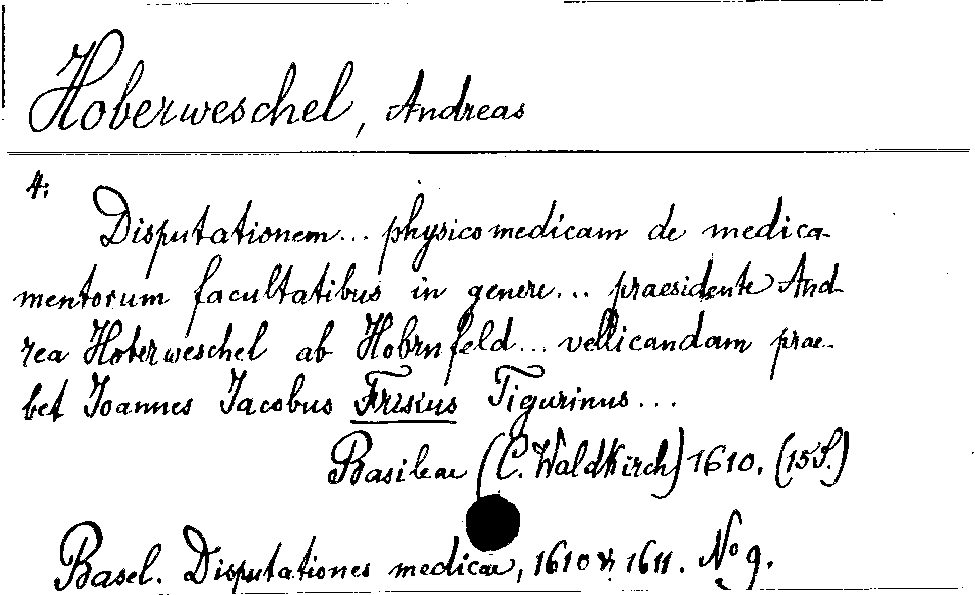 Hoberweschel, Andreas
4:
Disputationem... physicomedicam de medica-
mentorum facultatibus in genere... praesidente And-
rea Hoberweschel ab Hobrnfeld... vellicandam prae-
bet Joannes Jacobus Frisius Tigurinus...
Basileae (C. Waldkirch) 1610. (15 S.)
Basel. Disputationes medicae, 1610 & 1611. No 9.